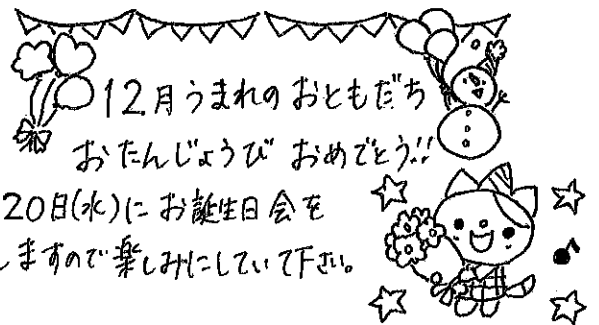 12月うまれのおともだち
おたんじょうび おめでとう!!
20日(水)にお誕生日会を
しますので楽しみにしていて下さい。